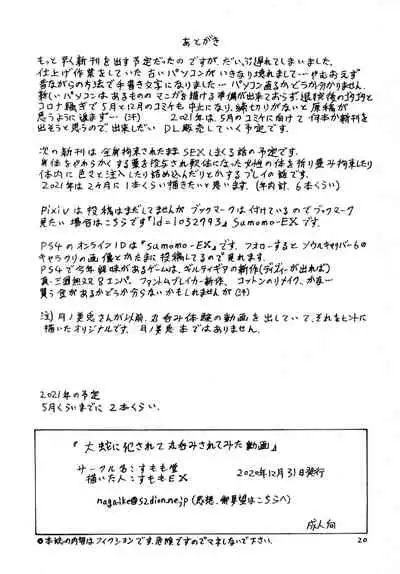 あとがき
もっと早く新刊を出す予定だったのですが、だいぶ遅れてしまいました。
仕上げ作業をしていた古いパソコンがいきなり壊れまして…やむおえず
昔ながらの方法で手書き文字になりました… パソコン直るかどうか分かりません。
新しいパソコンはあるもののマンガを描ける準備が出来ておらず、
コロナ騒ぎで5月と12月のコミケも中止になり、締切りがないと原稿が
思うように進まず…(汗) 2021年は、5月のコミケに向けて何本か新刊を
出そうと思うので、出来しだいDL販売していく予定です。
次の新刊は全身拘束されたままSEXしまくる話の予定です。
身体をやわらかくする薬を投与され軟体になった女性の体を折り畳み拘束したり
体内に色々と注入したり詰め込んだりとかするプレイの話です。
2021年は2ヶ月に1本くらい描きたいと思います。(年内計、6本くらい)
pixivは投稿はまだしてませんがブックマークは付けているのでブックマーク
見たい場合はこちらです『id=1032793』sumomo-EXです。
PS4のオンラインIDは『sumomo-EX』です。フォローするとソウルキャリバー6の
キャラクリの画像とかたまに投稿してるので見れます。
PS4で今年興味があるゲームは、ギルティギアの新作(ディズィーが出れば)
真・三國無双8エンパ、ファントムブレイカー新作、コットンのリメイク、かな…
買う金があるかどうか分らないかもしれませんが(汗)
注) 月ノ美兎さんが以前、丸呑み体験の動画を出していて、それをヒントに
描いたオリジナルです。月ノ美兎本ではありません。
2021年の予定
5月くらいまでに2本くらい。
『大蛇に犯されて丸呑みされてみた動画』
サークル名:すもも堂
描いた人:すももEX
2020年12月31日発行
nagaike@s2.dion.ne.jp (感想、御要望はこちらへ)
成人向
●本誌の内容はフィクションです。危険ですのでマネしないで下さい。
20